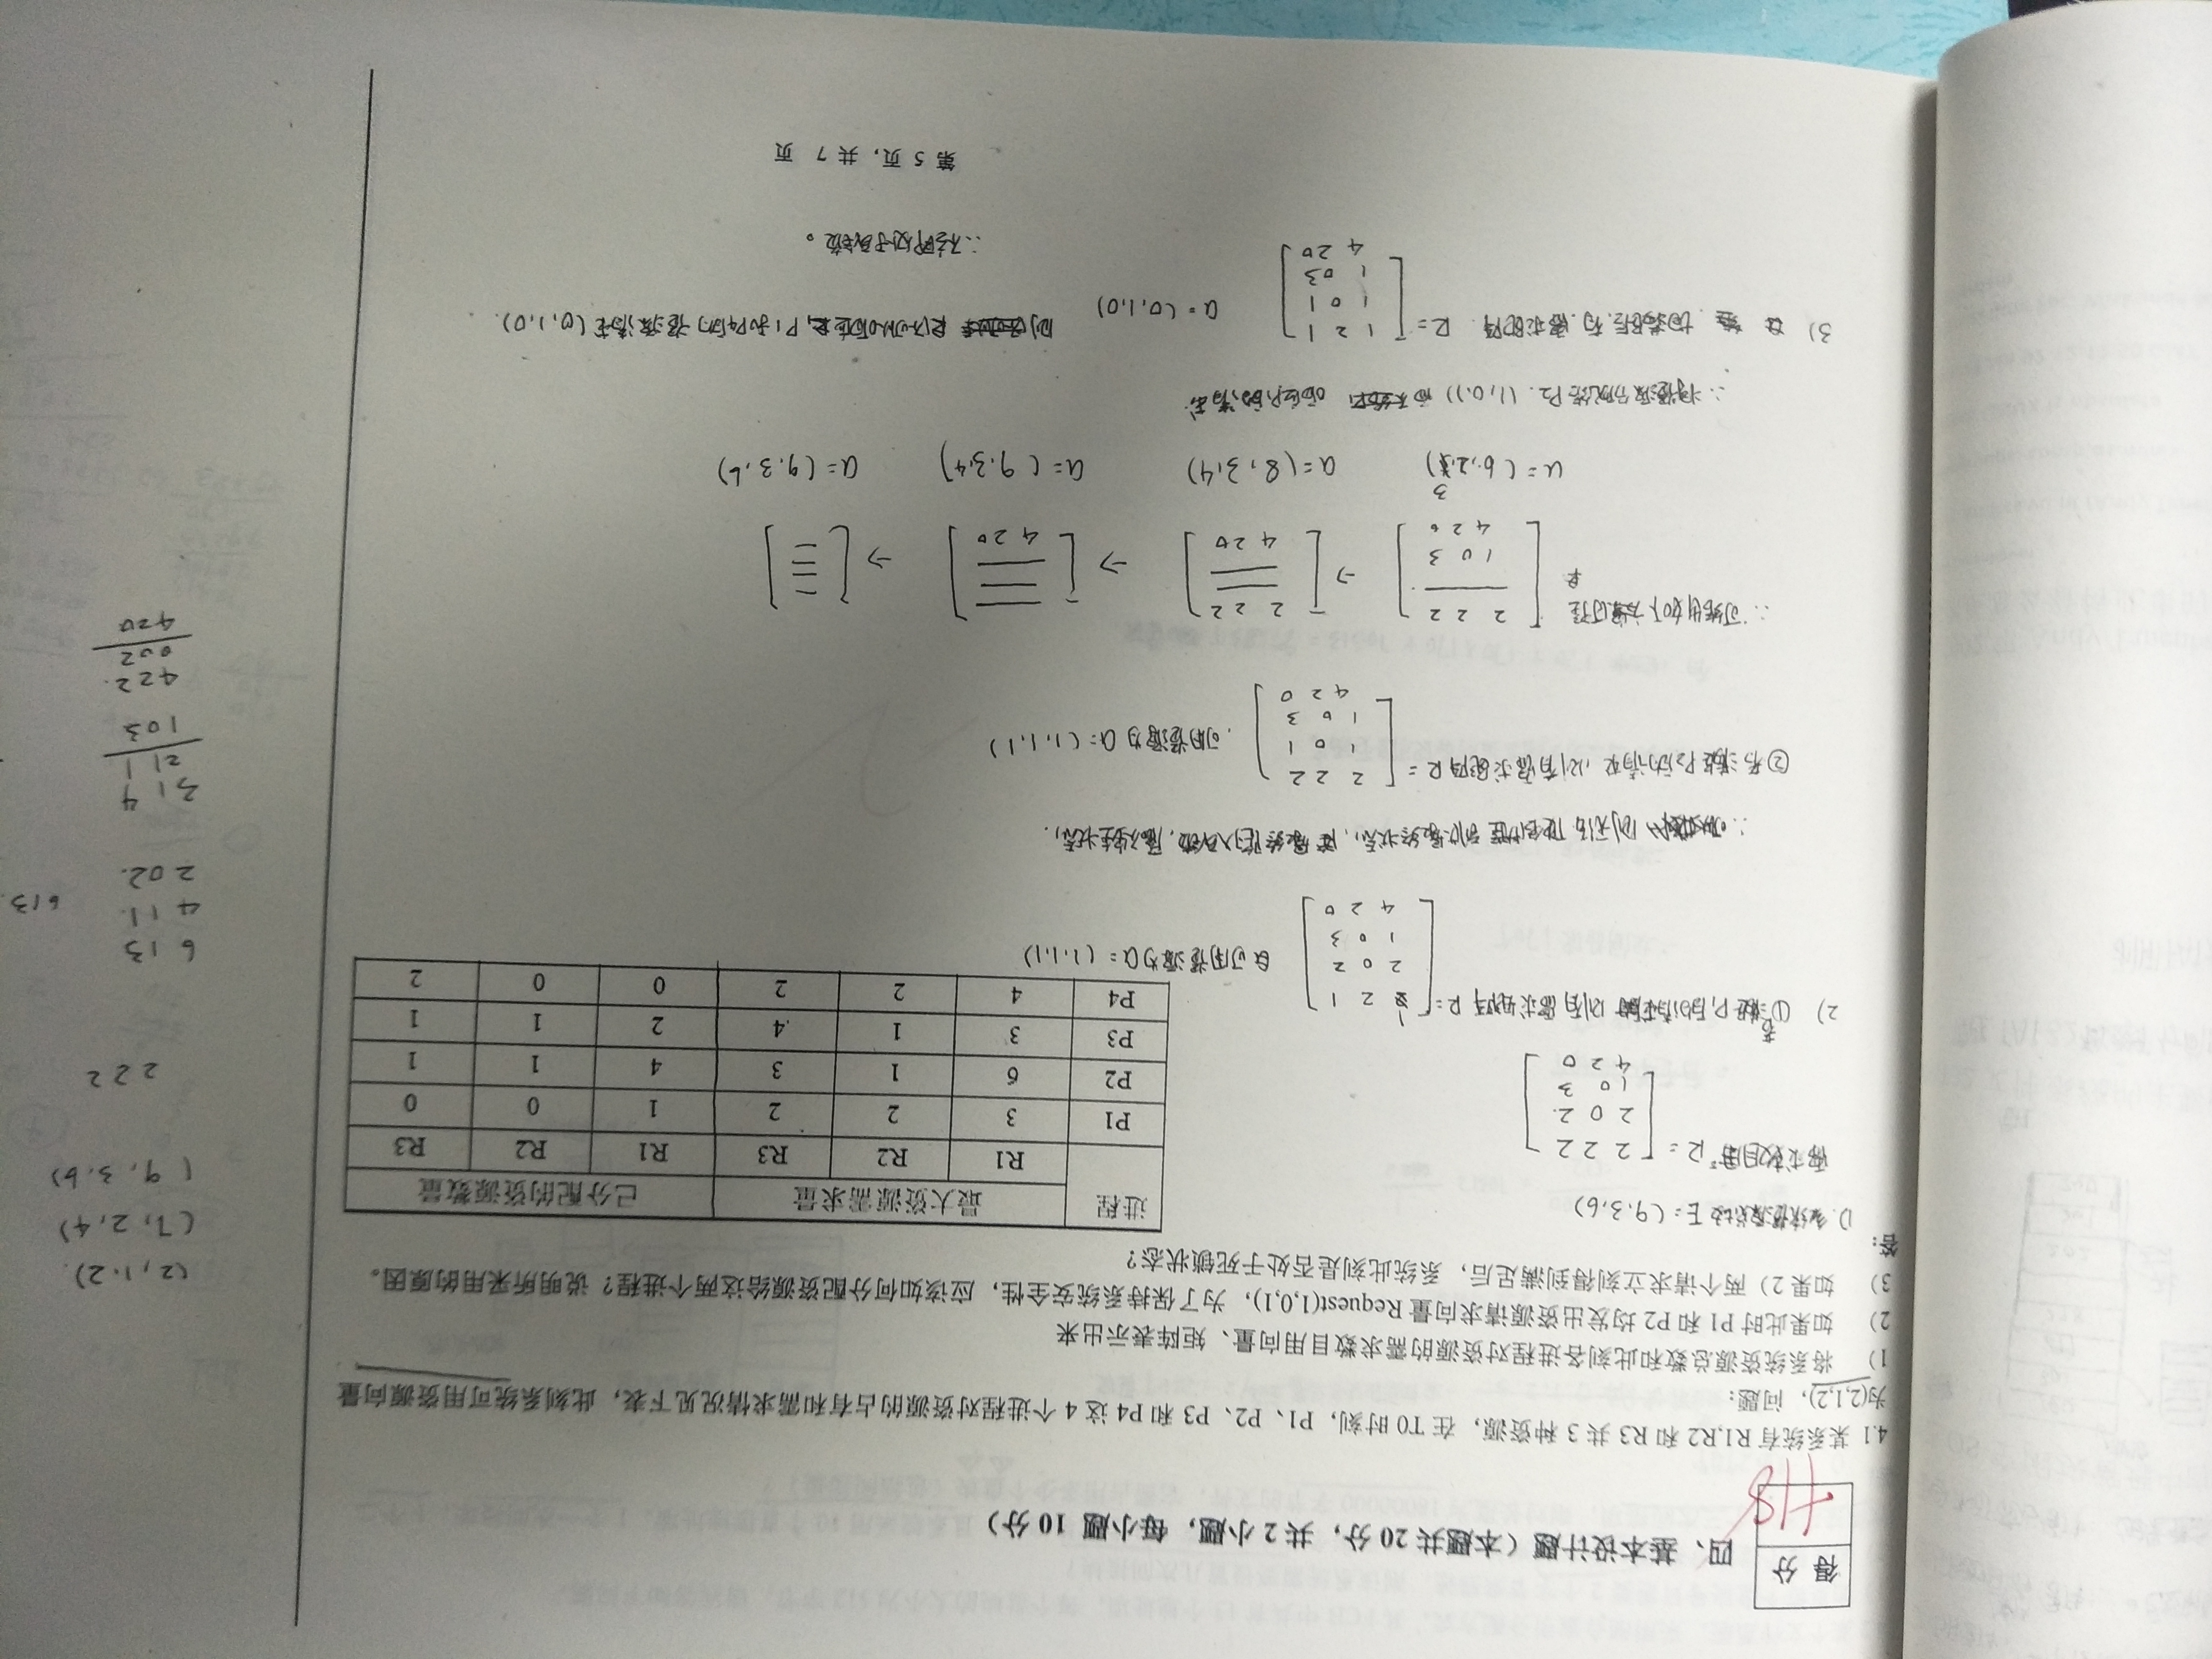 得 分
+18
四、基本设计题（本题共 20 分，共 2 小题，每小题 10 分）
4.1 某系统有 R1,R2 和 R3 共 3 种资源，在 T0 时刻，P1、P2、P3 和 P4 这 4 个进程对资源的占有和需求情况见下表，此刻系统可用资源向量
为(2,1,2)，问题：
1） 将系统资源总数和此刻各进程对资源的需求数目用向量、矩阵表示出来
2） 如果此时 P1 和 P2 均发出资源请求向量 Request(1,0,1)，为了保持系统安全性，应该如何分配资源给这两个进程？说明所采用的原因。
3） 如果 2）两个请求立刻得到满足后，系统此刻是否处于死锁状态？
答：
进程 最大资源需求量 已分配的资源数量
R1 R2 R3 R1 R2 R3
P1 3 2 2 1 0 0
P2 6 1 3 4 1 1
P3 3 1 4 2 1 1
P4 4 2 2 0 0 2
1). 系统资源总数 E = (9,3,6)
需求数目用 R =
2 2 2
2 0 2
1 0 3
4 2 0
2) ① 若满足 P1 的请求 则有需求矩阵 R =
1 2 1
2 0 2
1 0 3
4 2 0
可用资源为 a = (1,1,1)
∴ 则无法使 到达最终状态, 最终陷入死锁, 属不安全状态.
② 若满足 P2 的请求, 则有需求矩阵 R =
2 2 2
1 0 1
1 0 3
4 2 0
可用资源为 a = (1,1,1)
∴ 可给出如下方案
2 2 2
1 0 3
4 2 0
→
2 2 2
4 2 0
→
4 2 0
→
a = (6,2,3) a = (8,3,4) a = (9,3,4) a = (9,3,6)
∴ 将资源分配给 P2. (1,0,1) 而 响应P1的请求
3) 均满足后, 有需求矩阵 R =
1 2 1
1 0 1
1 0 3
4 2 0
a = (0,1,0) 则 可以响应 P1 和 P4 的资源请求 (0,1,0).
∴ 不立即处于死锁。
(2,1,2).
(7,2,4)
(9,3,6)
2 2 2
6 1 3
4 1 1.
2 0 2.
6 1 3.
3 1 4
2 1 1
1 0 3
4 2 2.
0 0 2
4 2 0
第 5 页，共 7 页